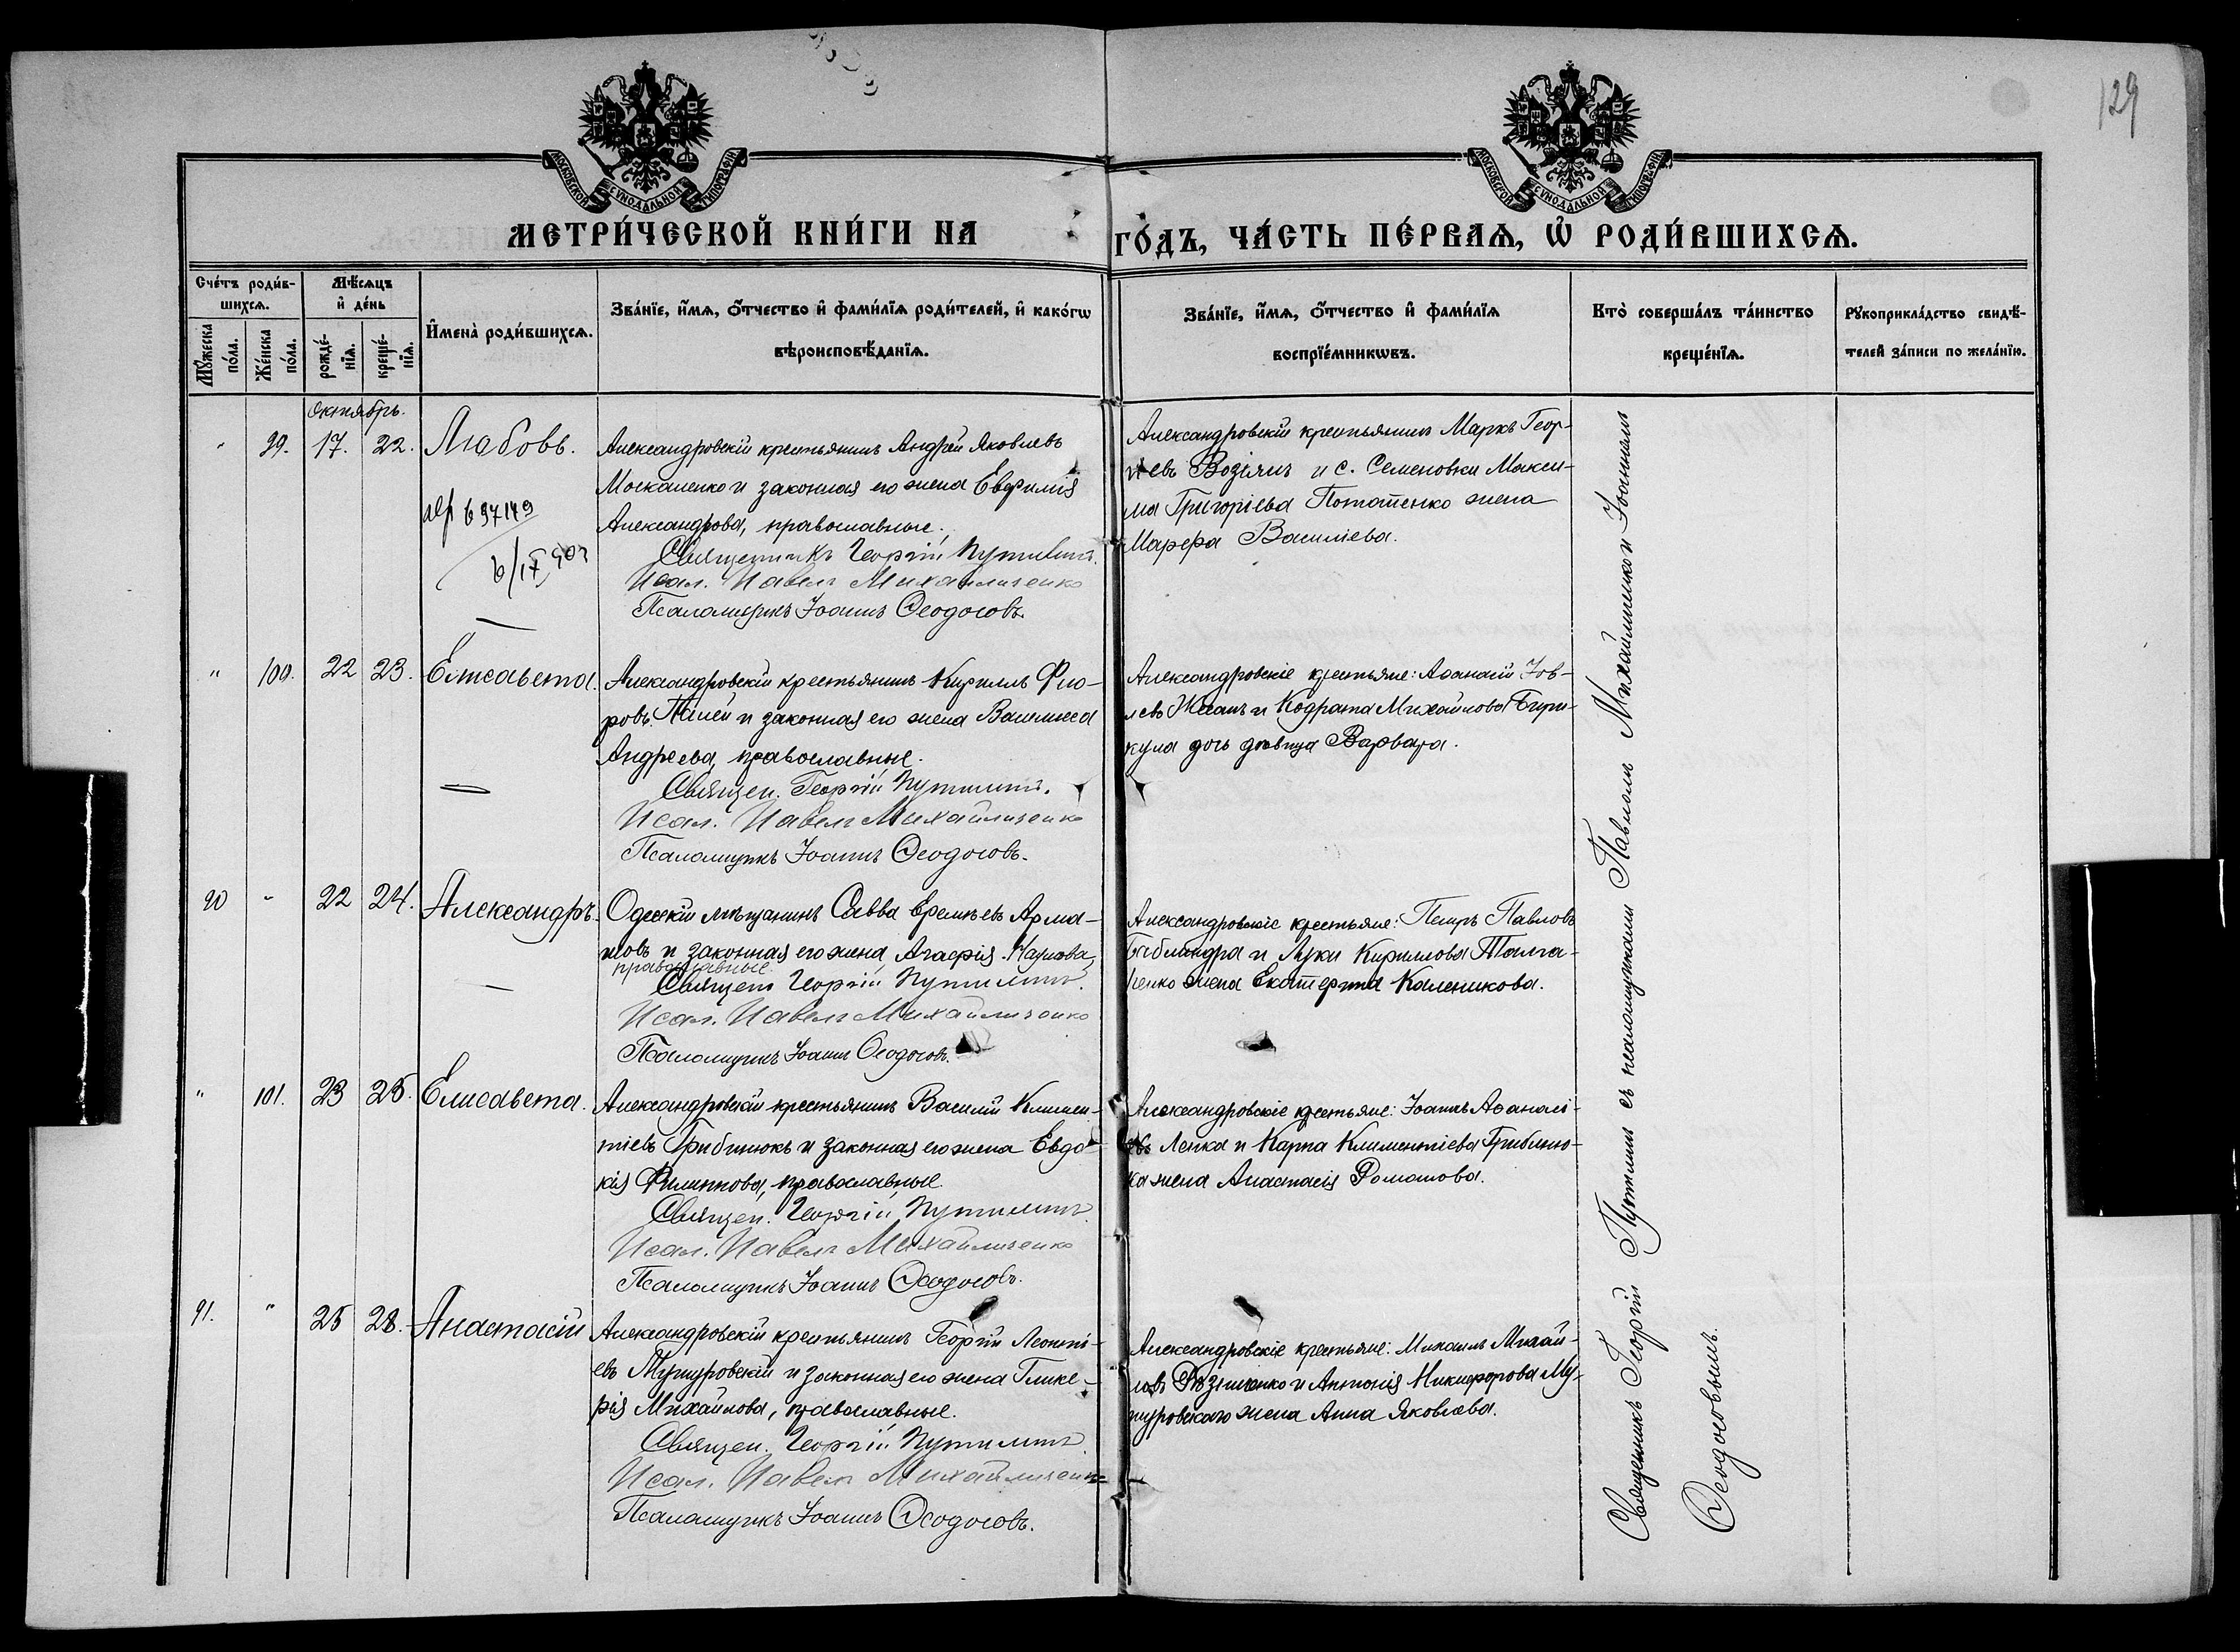 129
МОСКОВСКОЙ СѴНОДАЛЬНОЙ ТИПОГРАФІИ
МОСКОВСКОЙ СѴНОДАЛЬНОЙ ТИПОГРАФІИ
МЕТРИ́ЧЕСКОЙ КНИ́ГИ НА
ГО́ДЪ, ЧА́СТЬ ПЕ́РВАѦ, Ѡ҆ РОДИ́ВШИХСѦ.
Сче́тъ роди́в-
шихсѧ.
Мѣ́сѧцъ
и҆ де́нь
Мꙋ́жеска
по́ла.
Же́нска
по́ла.
рожде́-
нїѧ.
креще́-
нїѧ.
И҆мена̀ роди́вшихсѧ.
Зва́нїе, и҆́мѧ, ѻ҆́тчество и҆ фами́лїѧ роди́телей, и҆ како́гѡ
вѣроисповѣ́данїѧ.
Зва́нїе, и҆́мѧ, ѻ҆́тчество и҆ фами́лїѧ
воспрїе́мникѡвъ.
Кто̀ соверша́лъ та́инство
креще́нїѧ.
Рꙋкоприкла́дство свидѣ́-
телей за́писи по жела́нїю.
Октябрь.
" 99. 17. 22. Любовь.
Александровскій крестьянинъ Андрей Яковлевъ
Москаленко и законная его жена Евфимія
Александрова, православные.
Священникъ Георгій Путилинъ.
Псал. Павелъ Михайличенко
Псаломщикъ Іоаннъ Ѳеодосовъ.
Александровскій крестьянинъ Маркъ Геор-
гіевъ Возіянъ и с. Семеновки Макси-
ма Григоріева Поташенко жена
Марфа Василіева.
697149
" 100. 22 23. Елисавета.
Александровскій крестьянинъ Кириллъ Фло-
ровъ Палей и законная его жена Василиса
Андреева, православные.
Священ. Георгій Путилинъ.
Псал. Павелъ Михайличенко
Псаломщикъ Іоаннъ Ѳеодосовъ.
Александровскіе крестьяне: Аѳанасій Іов-
левъ и Кодрата Михайлова Бири-
кула дочь дѣвица Варвара.
90 " 22 24. Александръ.
Одесскій мѣщанинъ Савва Еремѣевъ Арма-
шовъ и законная его жена Агафія Наумова,
православные.
Священ. Георгій Путилинъ.
Псал. Павелъ Михайличенко
Псаломщикъ Іоаннъ Ѳеодосовъ.
Александровскіе крестьяне: Петръ Павловъ
и Луки Кириллова Талма-
ченко жена Екатерина Каленикова.
" 101. 23 25. Елисавета.
Александровскій крестьянинъ Василій Климен-
тіевъ Грибинюкъ и законная его жена Евдо-
кія Филиппова, православные.
Священ. Георгій Путилинъ.
Псал. Павелъ Михайличенко
Псаломщикъ Іоаннъ Ѳеодосовъ.
Александровскіе крестьяне: Іоаннъ Аѳанасі-
евъ Лепка и Карпа Климентіева Грибиню-
ка жена Анастасія Романова.
91. " 25 28. Анастасій
Александровскій крестьянинъ Георгій Леонті-
евъ Мушуровскій и законная его жена Глике-
рія Михайлова, православные.
Священ. Георгій Путилинъ.
Псал. Павелъ Михайличенко
Псаломщикъ Іоаннъ Ѳеодосовъ.
Александровскіе крестьяне: Михаилъ Михай-
ловъ и Антонія Никифорова Му-
шуровскаго жена Анна Яковлева.
Священникъ Георгій Путилинъ съ псаломщиками Павломъ Михайличенко и Іоанномъ
Ѳеодосовымъ.